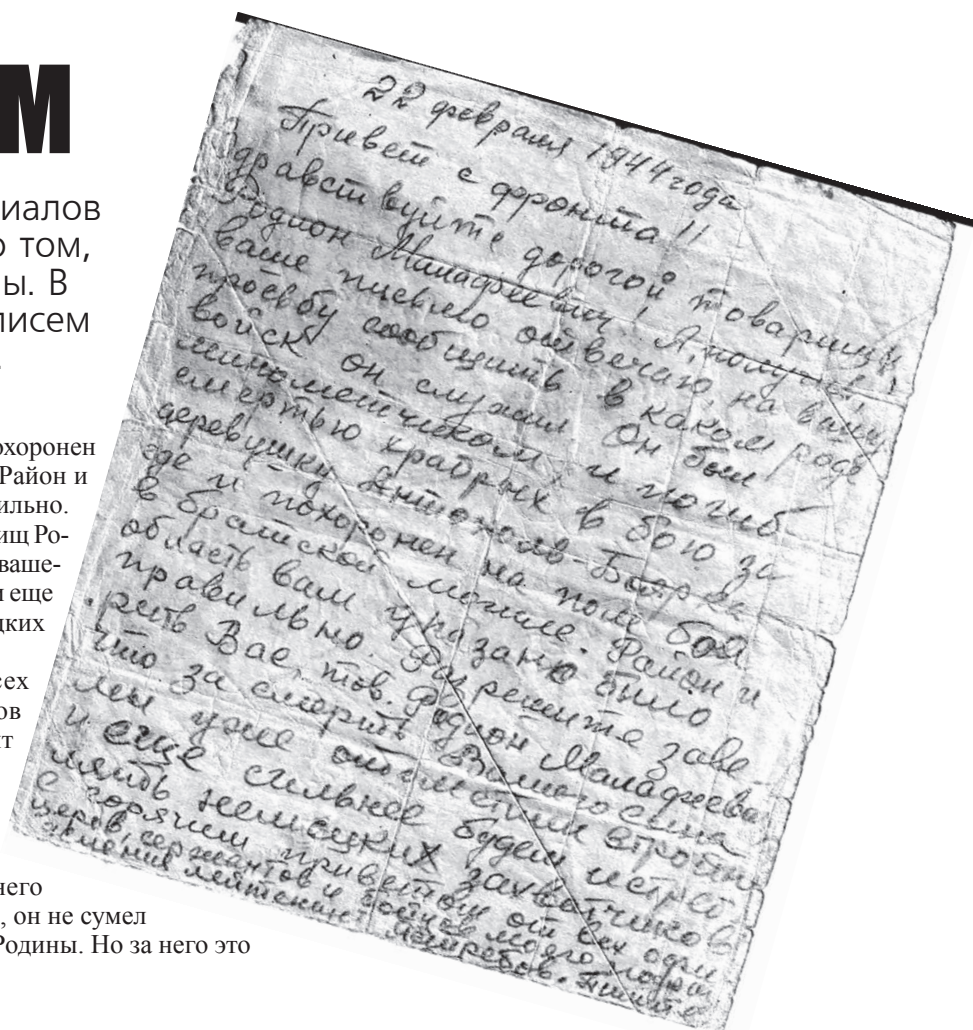 М
иалов
о том,
ы. В
писем
охоронен
Район и
ильно.
ищ Ро-
ваше-
и еще
цких
сех
ов
ит
него
, он не сумел
Родины. Но за него это
22 февраля 1944 года
Привет с фронта!!
дравствуйте дорогой товарищ
Родион Малафеевич! Я, получив,
ваше письмо отвечаю, на вашу
просьбу сообщить в каком роде
войск он служил Он был
минометчиком, и погиб
смертью храбрых в бою за
деревушку Боярка
где и похоронен на поле боя
в братской могиле. Район и
область вам указано было
правильно. Разрешите заве-
рить Вас, тов. Родион Малафеевич
что за смерть Вашего сына
мы уже отомстили втройне
и еще сильнее будем истреб
лять немецких захватчиков
с горячим приветом от всех офи
церов, сержантов и бойцов моего
лейтенант Ястребов. Пишите